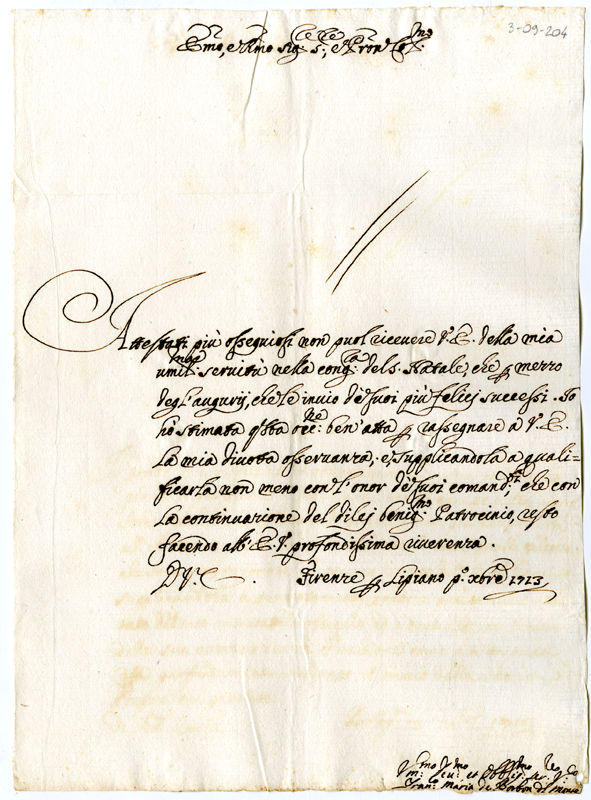 3-09-204
Em̃o, e Rm̃o Sig:re S:, e Pron Col:mo
Attestati più osseguiosi non puol riceuere V. E. della mia
umil:ma seruitù nella cong:ra del S. Natale, che p mezzo
degl'augurij, che le inuio de suoi più felici successi. Io
hò stimata q̃sta occ:ne ben' atta p rassegnare a V. E.
la mia diuota osseruanza, e, supplicandola a quali=
ficarla non meno con l'onor de suoi comand:ti, che con
la continuazione del di lej benig:mo Patrocinio, resto
facendo all' E. V. profondissima riuerenza.
D V. E
Firenze p Lipiano p:o xbre 1713
Vm:mo Deu:mo et Obblig:mo Ser:re V:o
Fran:co Maria de Borbon del monte